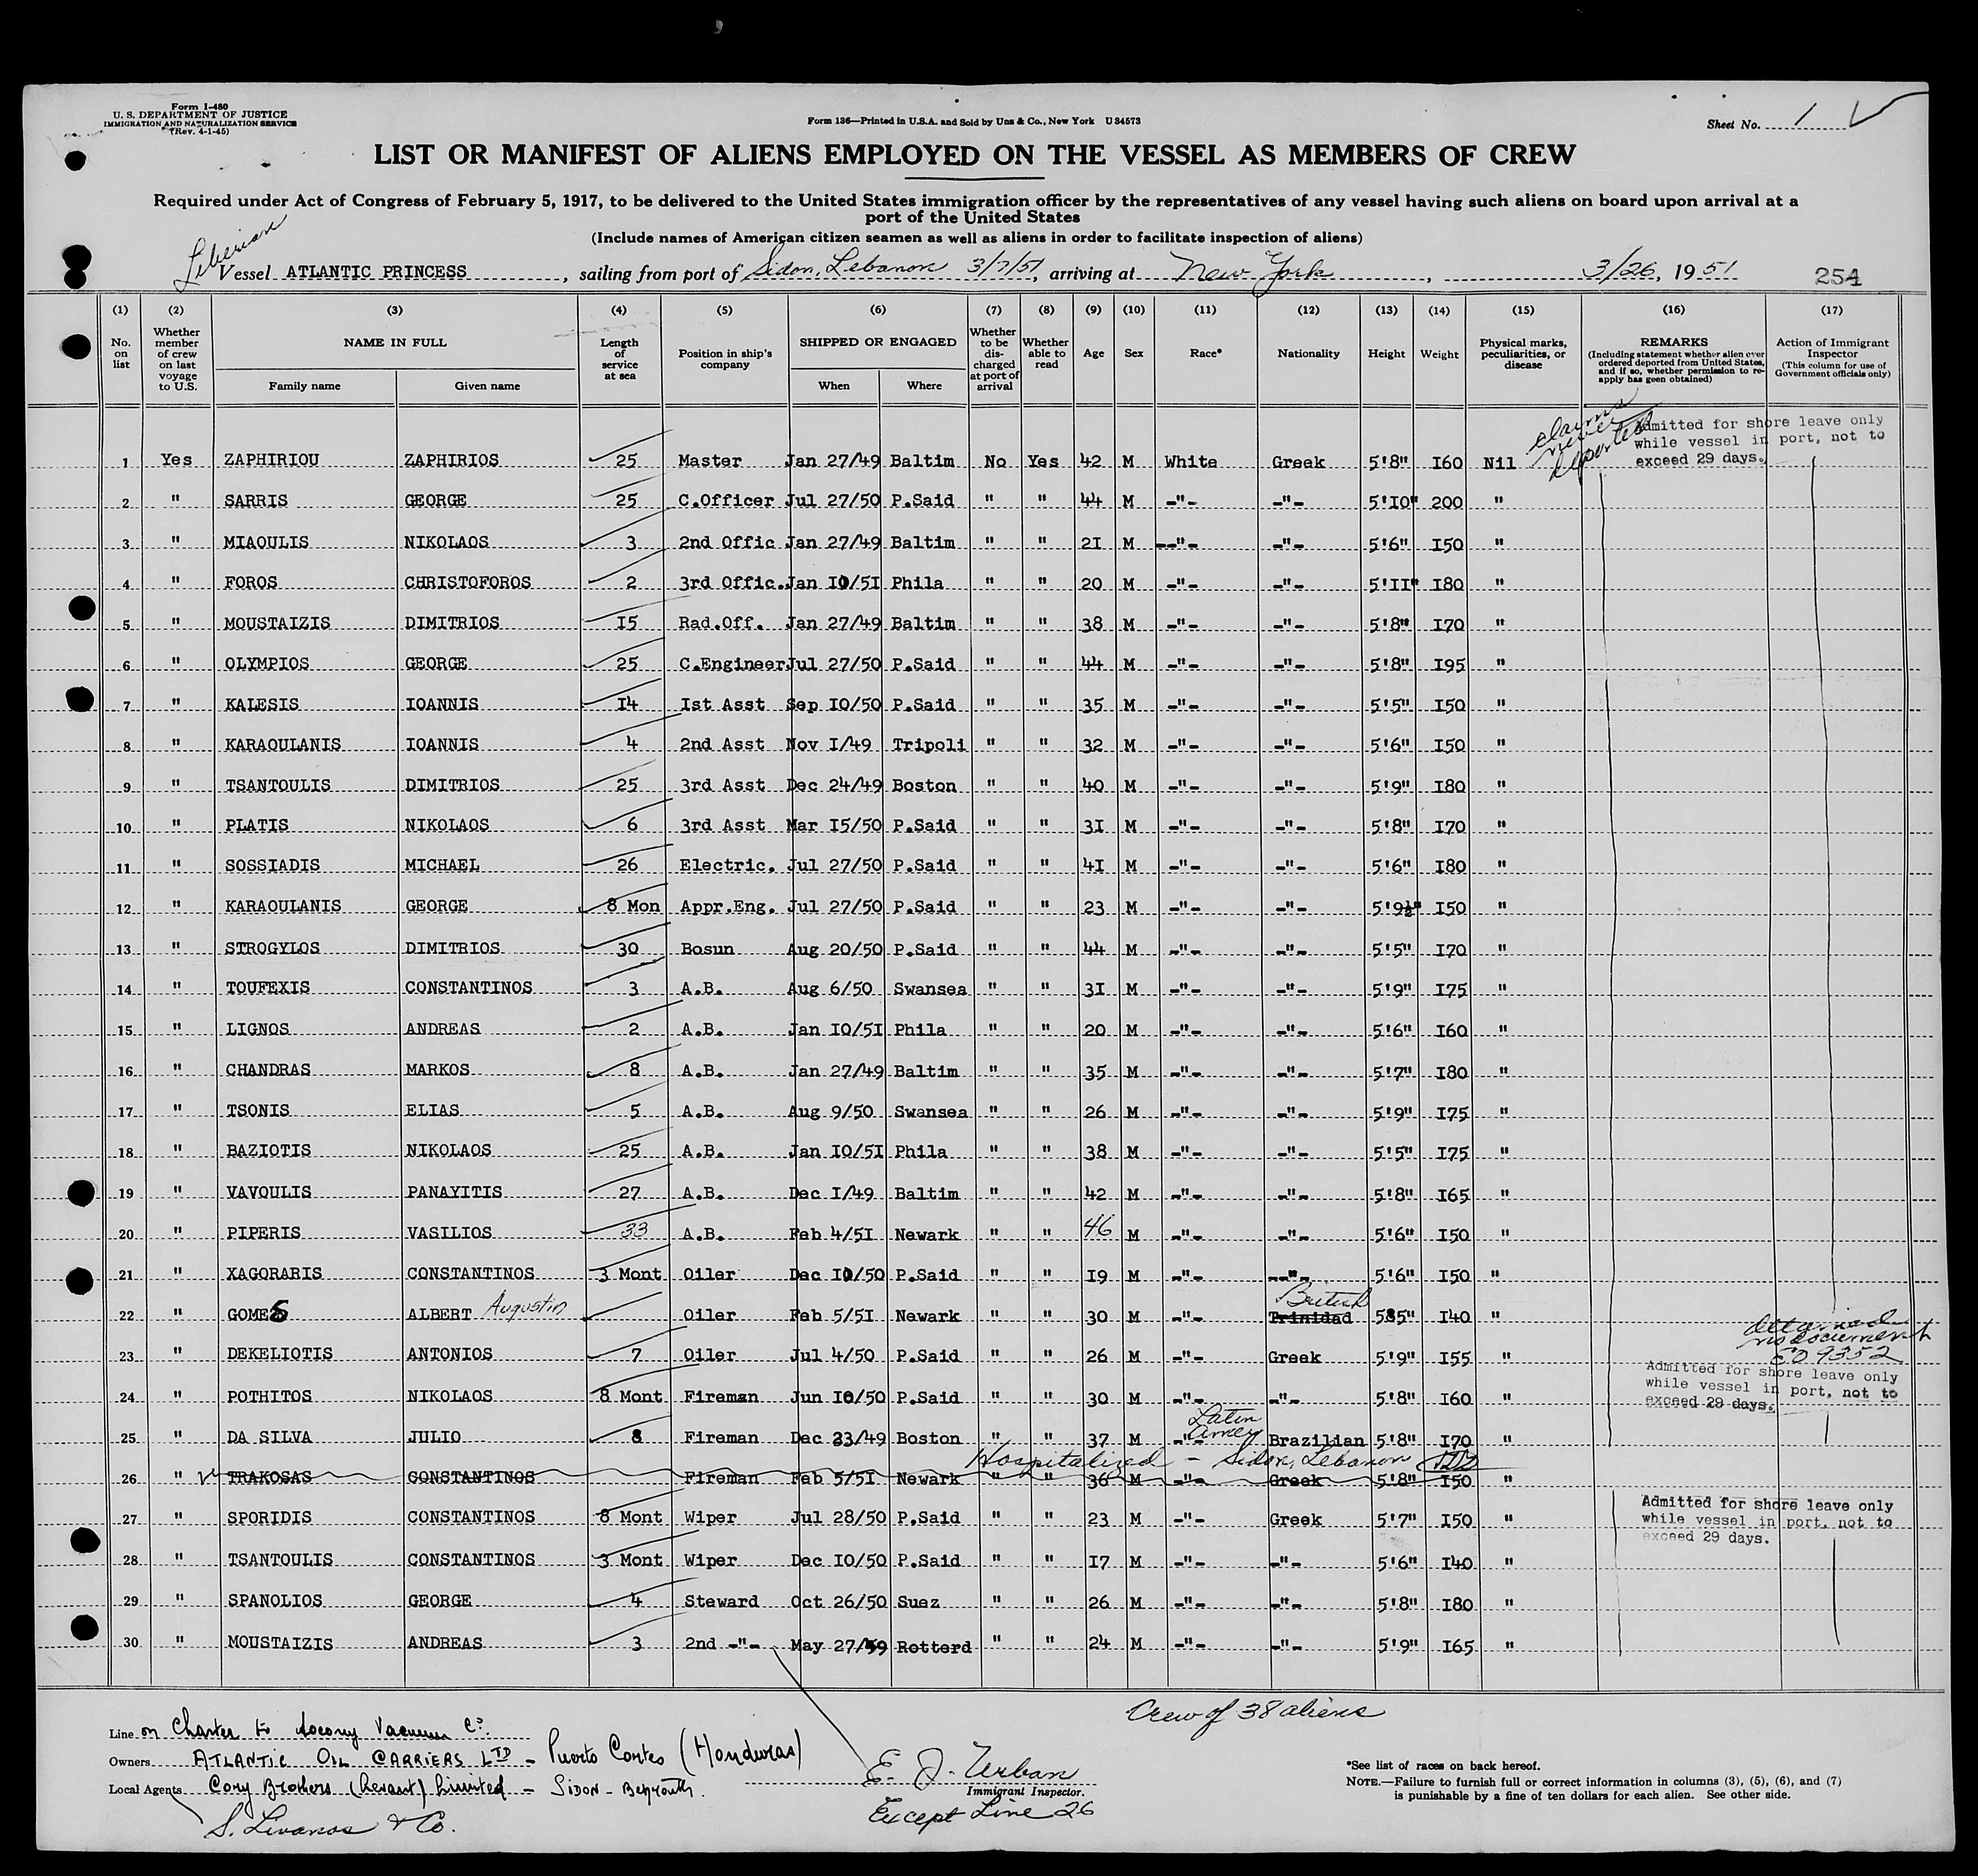 Form I-480
U. S. DEPARTMENT OF JUSTICE
IMMIGRATION AND NATURALIZATION SERVICE
(Rev. 4-1-45)
Form 136—Printed in U.S.A. and Sold by Unz & Co., New York U 34573
Sheet No. 1
LIST OR MANIFEST OF ALIENS EMPLOYED ON THE VESSEL AS MEMBERS OF CREW
Required under Act of Congress of February 5, 1917, to be delivered to the United States immigration officer by the representatives of any vessel having such aliens on board upon arrival at a
port of the United States
(Include names of American citizen seamen as well as aliens in order to facilitate inspection of aliens)
Liberian
Vessel ATLANTIC PRINCESS, sailing from port of Sidon, Lebanon 3/7/51, arriving at New York, 3/26, 1951 254
(1) (2) (3) (4) (5) (6) (7) (8) (9) (10) (11) (12) (13) (14) (15) (16) (17)
No. on list
Whether member of crew on last voyage to U.S.
NAME IN FULL
Family name Given name
Length of service at sea
Position in ship's company
SHIPPED OR ENGAGED
When Where
Whether to be discharged at port of arrival
Whether able to read
Age
Sex
Race*
Nationality
Height
Weight
Physical marks, peculiarities, or disease
REMARKS
(Including statement whether alien ever ordered deported from United States, and if so, whether permission to re-apply has geen obtained)
Action of Immigrant Inspector
(This column for use of Government officials only)
claims never deported
Admitted for shore leave only
while vessel in port, not to
exceed 29 days.
1 Yes ZAPHIRIOU ZAPHIRIOS 25 Master Jan 27/49 Baltim No Yes 42 M White Greek 5'8" I60 Nil
2 " SARRIS GEORGE 25 C.Officer Jul 27/50 P.Said " " 44 M -"- -"- 5'I0" 200 "
3 " MIAOULIS NIKOLAOS 3 2nd Offic Jan 27/49 Baltim " " 2I M --"- -"- 5'6" I50 "
4 " FOROS CHRISTOFOROS 2 3rd Offic. Jan I0/5I Phila " " 20 M -"- -"- 5'II" I80 "
5 " MOUSTAIZIS DIMITRIOS I5 Rad.Off. Jan 27/49 Baltim " " 38 M -"- -"- 5'8" I70 "
6 " OLYMPIOS GEORGE 25 C.Engineer Jul 27/50 P.Said " " 44 M -"- -"- 5'8" I95 "
7 " KALESIS IOANNIS I4 Ist Asst Sep I0/50 P.Said " " 35 M -"- -"- 5'5" I50 "
8 " KARAOULANIS IOANNIS 4 2nd Asst Nov I/49 Tripoli " " 32 M -"- -"- 5'6" I50 "
9 " TSANTOULIS DIMITRIOS 25 3rd Asst Dec 24/49 Boston " " 40 M -"- -"- 5'9" I80 "
10 " PLATIS NIKOLAOS 6 3rd Asst Mar I5/50 P.Said " " 3I M -"- -"- 5'8" I70 "
11 " SOSSIADIS MICHAEL 26 Electric. Jul 27/50 P.Said " " 4I M -"- -"- 5'6" I80 "
12 " KARAOULANIS GEORGE 8 Mon Appr.Eng. Jul 27/50 P.Said " " 23 M -"- -"- 5'9½" I50 "
13 " STROGYLOS DIMITRIOS 30 Bosun Aug 20/50 P.Said " " 44 M -"- -"- 5'5" I70 "
14 " TOUFEXIS CONSTANTINOS 3 A.B. Aug 6/50 Swansea " " 3I M -"- -"- 5'9" I75 "
15 " LIGNOS ANDREAS 2 A.B. Jan I0/5I Phila " " 20 M -"- -"- 5'6" I60 "
16 " CHANDRAS MARKOS 8 A.B. Jan 27/49 Baltim " " 35 M -"- -"- 5'7" I80 "
17 " TSONIS ELIAS 5 A.B. Aug 9/50 Swansea " " 26 M -"- -"- 5'9" I75 "
18 " BAZIOTIS NIKOLAOS 25 A.B. Jan I0/5I Phila " " 38 M -"- -"- 5'5" I75 "
19 " VAVOULIS PANAYITIS 27 A.B. Dec I/49 Baltim " " 42 M -"- -"- 5'8" I65 "
20 " PIPERIS VASILIOS 33 A.B. Feb 4/5I Newark " " 46 M -"- -"- 5'6" I50 "
21 " XAGORARIS CONSTANTINOS 3 Mont Oiler Dec I0/50 P.Said " " I9 M -"- --"- 5'6" I50 "
22 " GOMES ALBERT Augustin Oiler Feb 5/5I Newark " " 30 M -"- British Trinidad 585" I40 "
detained no document EO 9352
23 " DEKELIOTIS ANTONIOS 7 Oiler Jul 4/50 P.Said " " 26 M -"- Greek 5'9" I55 "
Admitted for shore leave only
while vessel in port, not to
exceed 29 days.
24 " POTHITOS NIKOLAOS 8 Mont Fireman Jun I0/50 P.Said " " 30 M -"- -"- 5'8" I60 "
25 " DA SILVA JULIO 8 Fireman Dec 23/49 Boston " " 37 M -"- Latin Amer Brazilian 5'8" I70 "
Hospitalized - Sidon, Lebanon
26 " TRAKOSAS CONSTANTINOS Fireman Feb 5/5I Newark " " 36 M -"- Greek 5'8" I50 "
Admitted for shore leave only
while vessel in port, not to
exceed 29 days.
27 " SPORIDIS CONSTANTINOS 8 Mont Wiper Jul 28/50 P.Said " " 23 M -"- Greek 5'7" I50 "
28 " TSANTOULIS CONSTANTINOS 3 Mont Wiper Dec I0/50 P.Said " " I7 M -"- -"- 5'6" I40 "
29 " SPANOLIOS GEORGE 4 Steward Oct 26/50 Suez " " 26 M -"- -"- 5'8" I80 "
30 " MOUSTAIZIS ANDREAS 3 2nd -"- May 27/49 Rotterd " " 24 M -"- -"- 5'9" I65 "
Crew of 38 aliens
Line on Charter to Socony Vacuum Co.
Owners ATLANTIC OIL CARRIERS LTD - Puerto Cortes (Honduras)
Local Agents Cory Brothers (Levant) Limited - SIDON - Beyrouth.
S. Livanos & Co.
E. J. Urban
Immigrant Inspector.
Except Line 26
*See list of races on back hereof.
NOTE.—Failure to furnish full or correct information in columns (3), (5), (6), and (7)
is punishable by a fine of ten dollars for each alien. See other side.